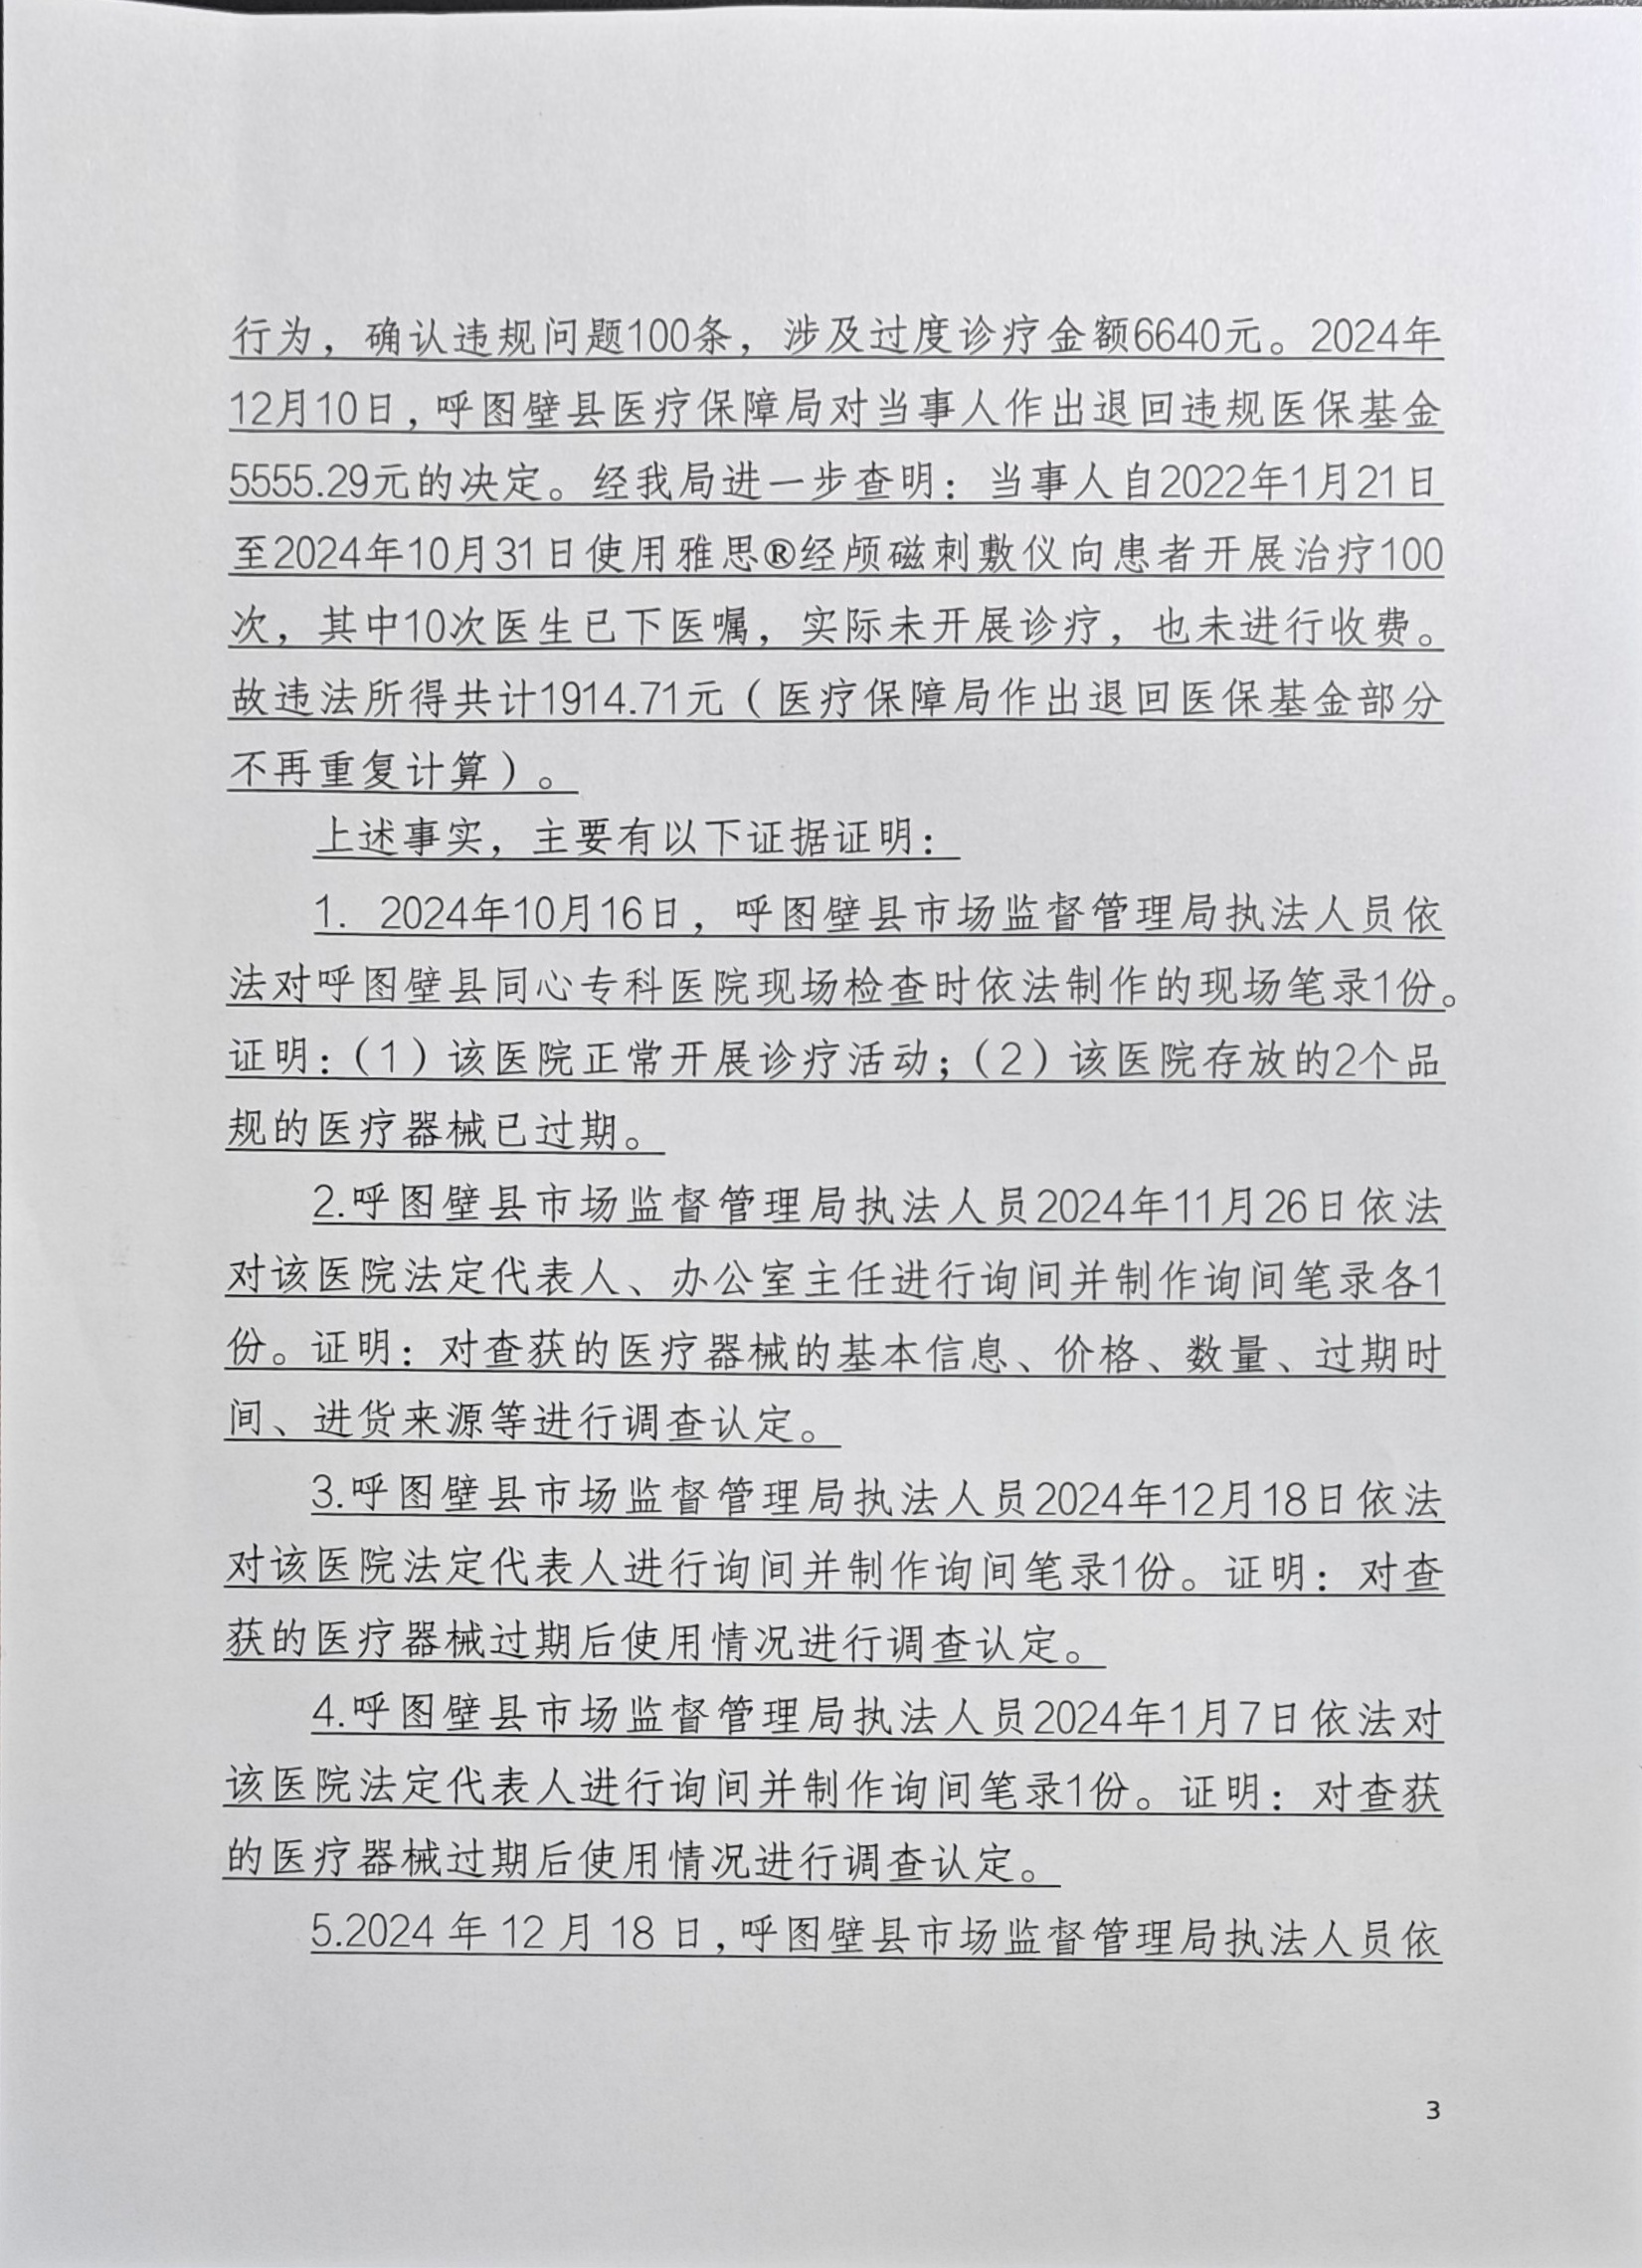 行为，确认违规问题100条，涉及过度诊疗金额6640元。2024年
12月10日，呼图壁县医疗保障局对当事人作出退回违规医保基金
5555.29元的决定。经我局进一步查明：当事人自2022年1月21日
至2024年10月31日使用雅思®经颅磁刺敷仪向患者开展治疗100
次，其中10次医生已下医嘱，实际未开展诊疗，也未进行收费。
故违法所得共计1914.71元（医疗保障局作出退回医保基金部分
不再重复计算）。
上述事实，主要有以下证据证明：
1. 2024年10月16日，呼图壁县市场监督管理局执法人员依
法对呼图壁县同心专科医院现场检查时依法制作的现场笔录1份。
证明：（1）该医院正常开展诊疗活动；（2）该医院存放的2个品
规的医疗器械已过期。
2.呼图壁县市场监督管理局执法人员2024年11月26日依法
对该医院法定代表人、办公室主任进行询问并制作询问笔录各1
份。证明：对查获的医疗器械的基本信息、价格、数量、过期时
间、进货来源等进行调查认定。
3.呼图壁县市场监督管理局执法人员2024年12月18日依法
对该医院法定代表人进行询问并制作询问笔录1份。证明：对查
获的医疗器械过期后使用情况进行调查认定。
4.呼图壁县市场监督管理局执法人员2024年1月7日依法对
该医院法定代表人进行询问并制作询问笔录1份。证明：对查获
的医疗器械过期后使用情况进行调查认定。
5.2024 年 12 月 18 日，呼图壁县市场监督管理局执法人员依
3